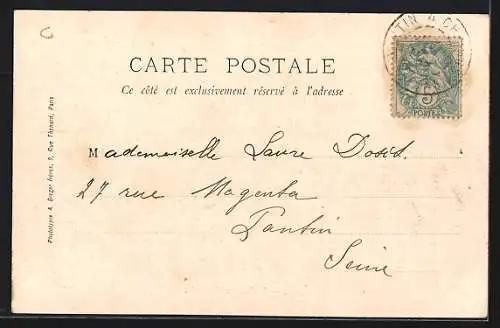 C
TIN A CH
CARTE POSTALE
Ce côté est exclusivement réservé à l'adresse
5
POSTES
Mademoiselle Laure
27 rue Magenta
Pantin
Seine
Phototypie A. Berger frères, 9, Rue Thénard, Paris